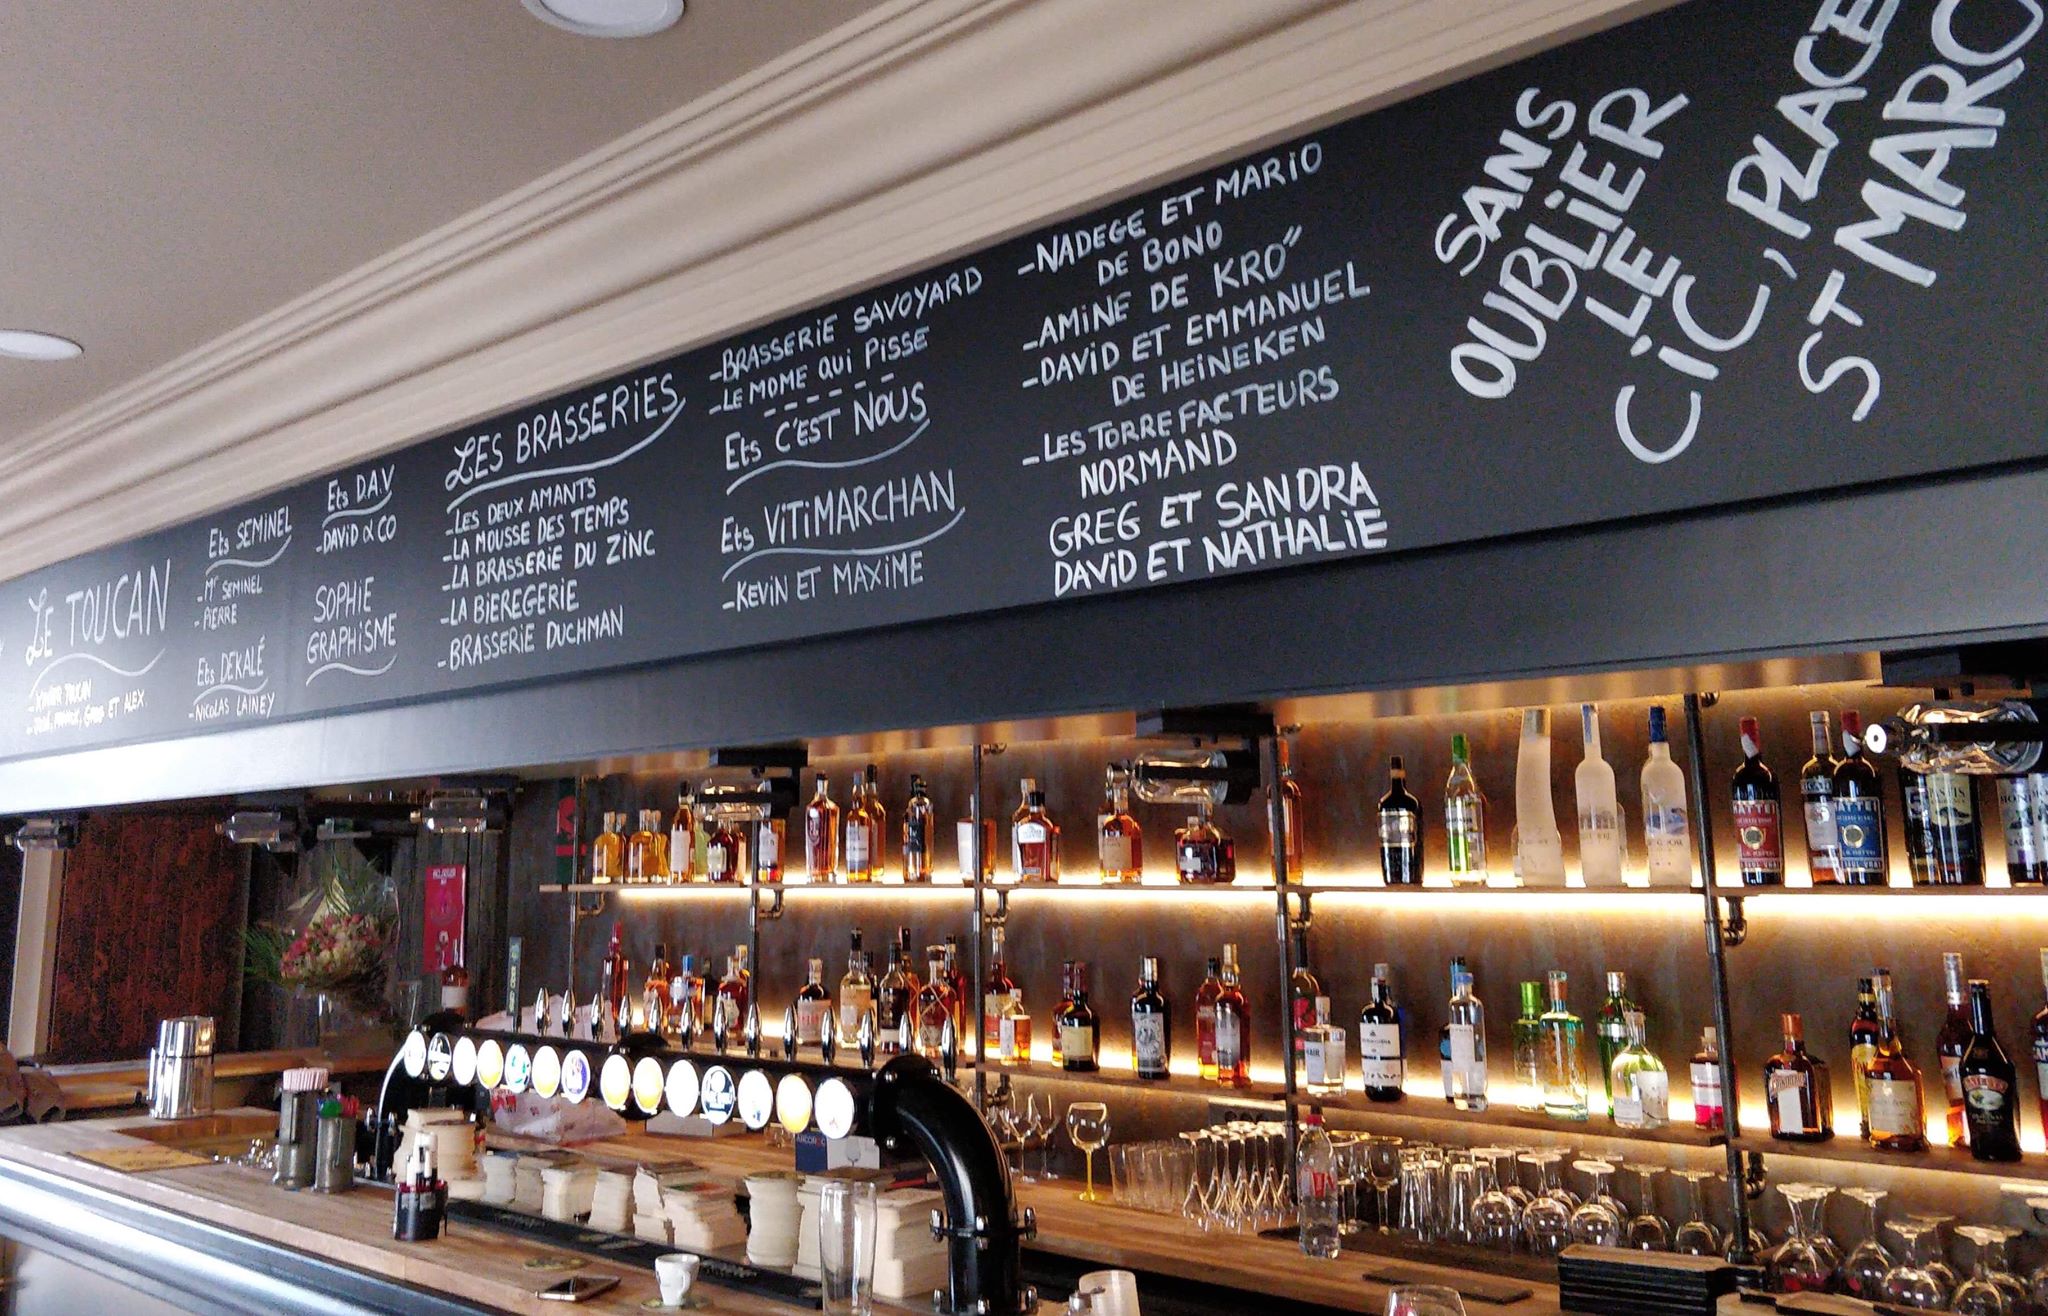 LE TOUCAN
Ets SEMINEL
-Mr SEMINEL
-PIERRE
Ets DEKALÉ
-NICOLAS LAINEY
Ets D.A.V
-DAVID & CO
SOPHIE
GRAPHISME
LES BRASSERIES
-LES DEUX AMANTS
-LA MOUSSE DES TEMPS
-LA BRASSERIE DU ZINC
-LA BIEREGERIE
-BRASSERIE DUCHMAN
-BRASSERIE SAVOYARD
-LE MOME QUI PISSE
Ets C'EST NOUS
Ets VITIMARCHAN
-KEVIN ET MAXIME
-NADEGE ET MARIO
DE BONO
-AMINE DE KRO"
-DAVID ET EMMANUEL
DE HEINEKEN
-LES TORREFACTEURS
NORMAND
GREG ET SANDRA
DAVID ET NATHALIE
SANS
OUBLIER
LE
CIC, PLACE
ST MARC